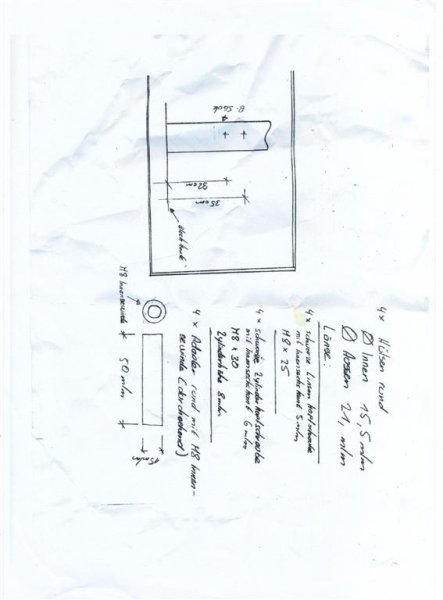 B-Säule
32 cm
35 cm
4 x Hülsen rund
∅ Innen 15,5 m/m
∅ Aussen 21, m/m
Länge:
4 x schwarze Linsenkopfschraube
mit Innensechskant 5 m/m
M8 x 25
4 x schwarze Zylinderkopfschraube
mit Innensechskant 6 m/m
M8 x 30
Zylinderhöhe 8 m/m
4 x Adapter rund mit M8 Innen-
gewinde (durchgehend)
M8 Innengewinde
50 m/m
15 m/m